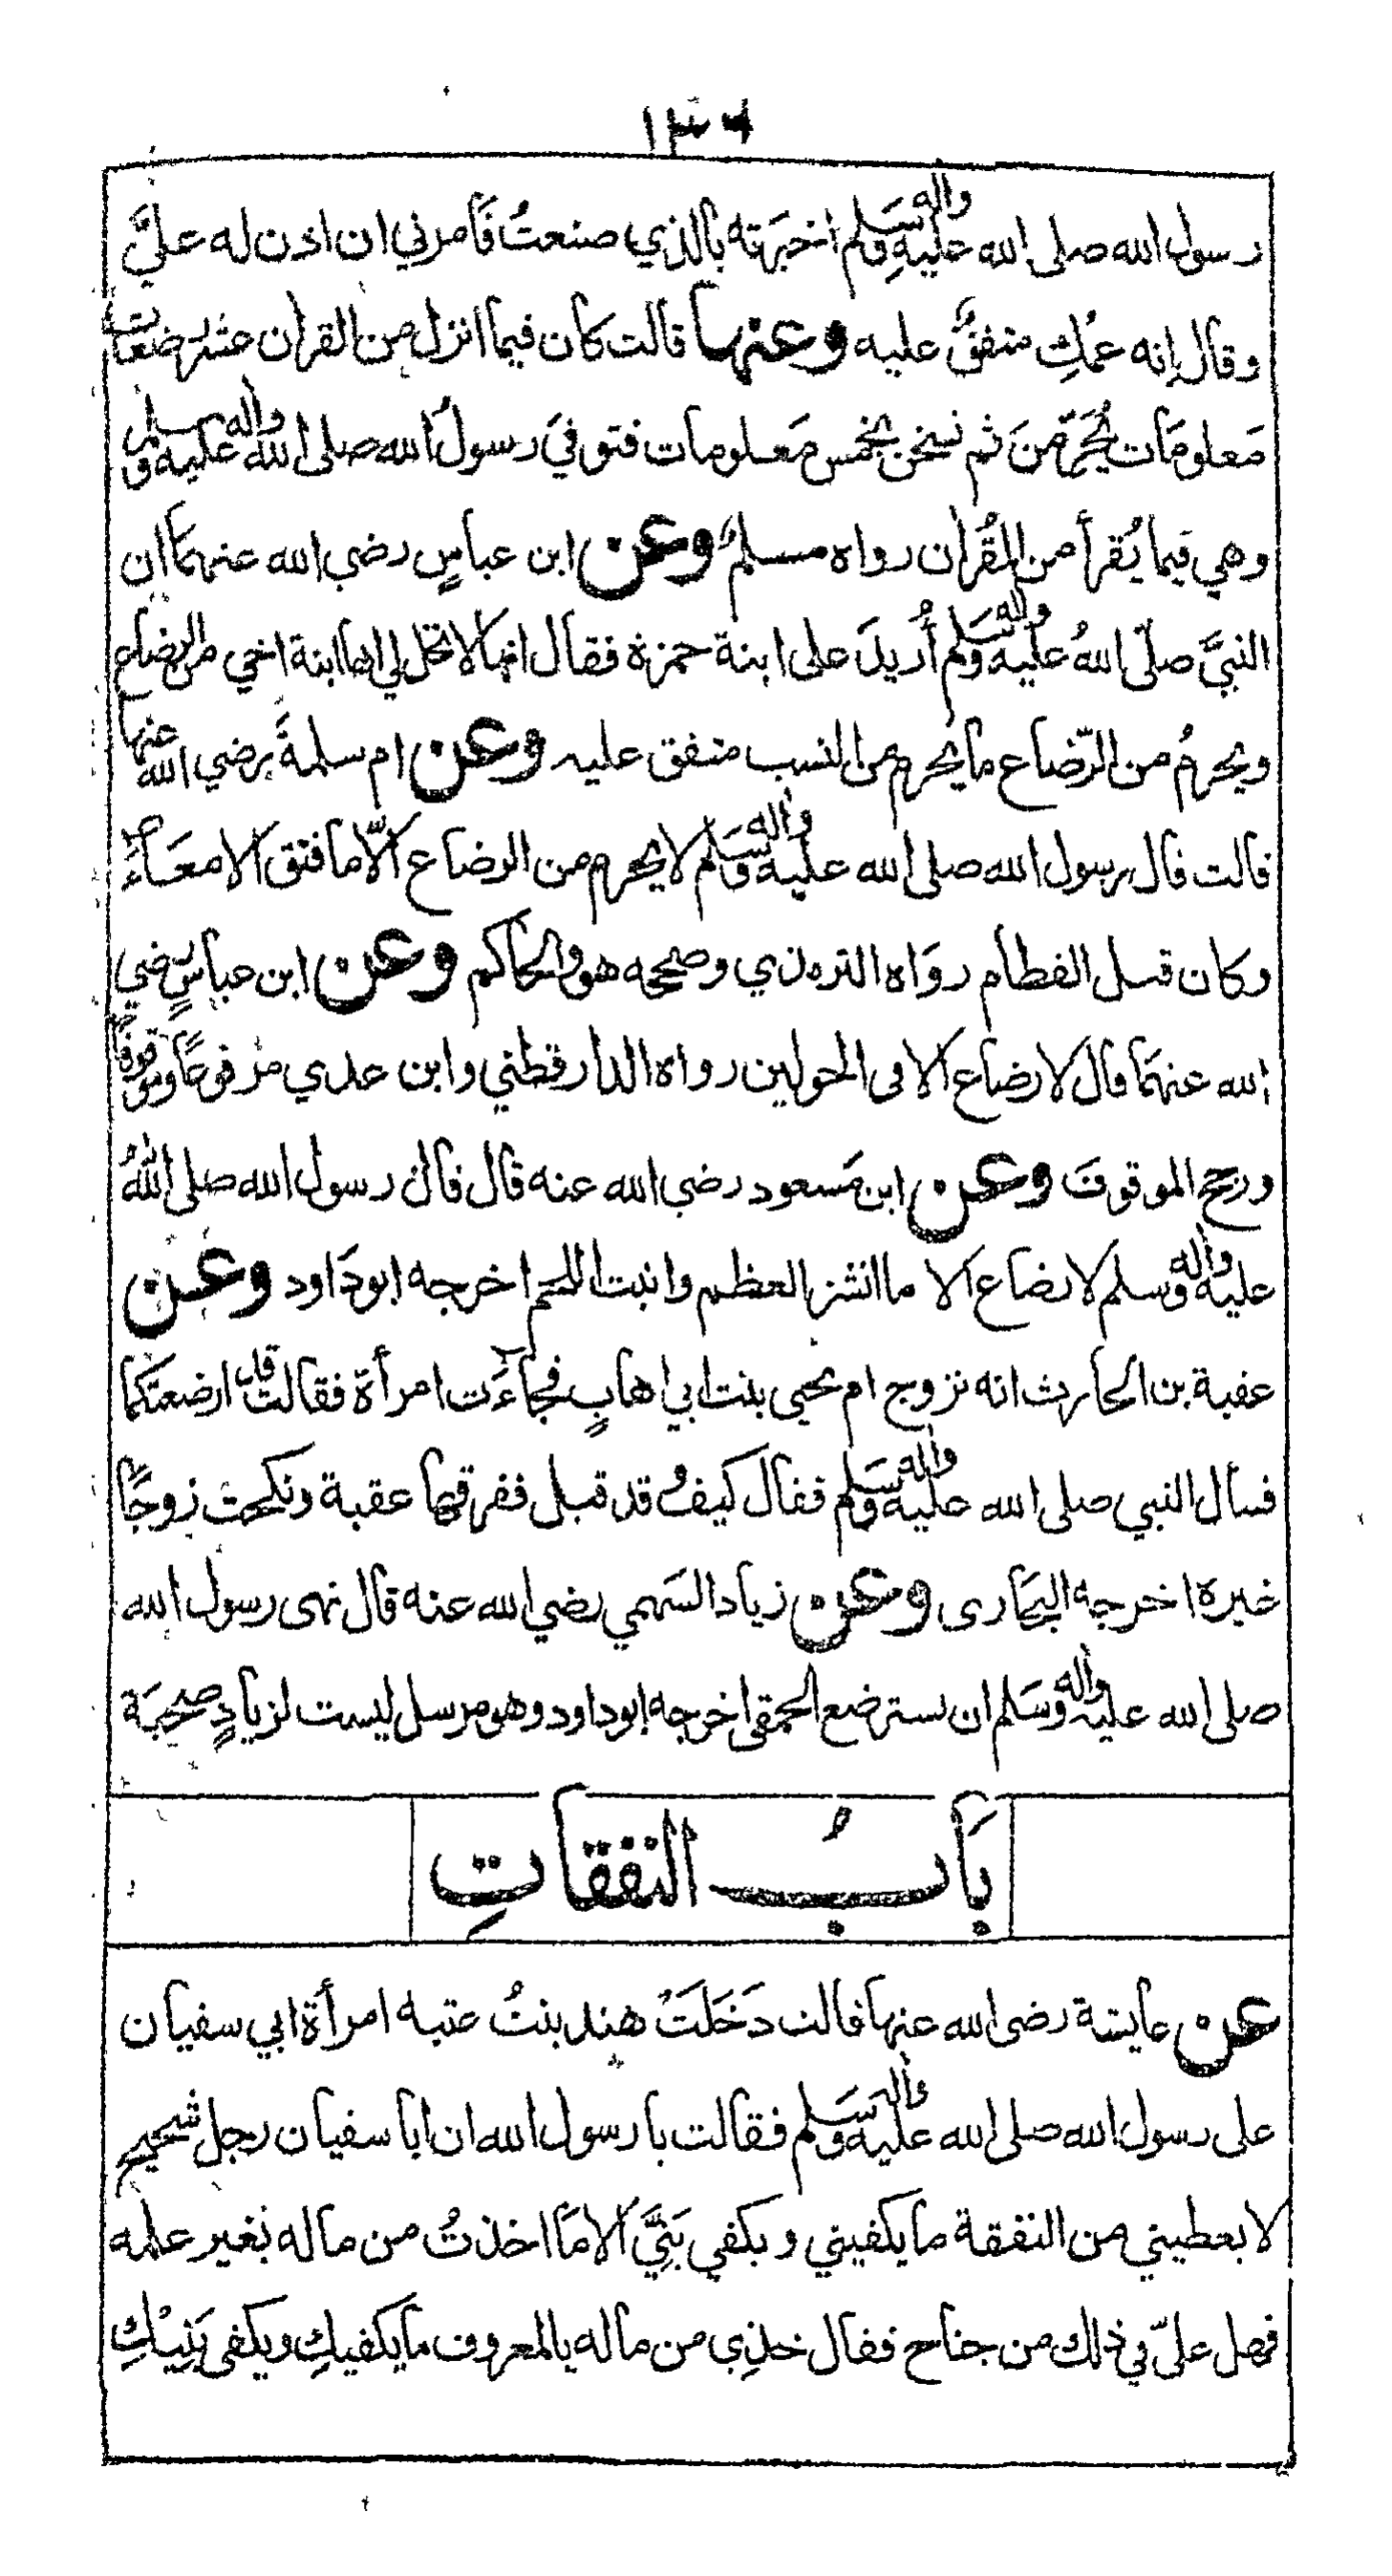 ١٣٦
رسول الله صلى الله عليه واله وسلم اخبرته بالذي صنعتُ فأمرني ان اذن له عليَّ
وقال إنه عمُّكِ متفقٌ عليه وعنها قالت كان فيما انزل من القران عشر رضعات
معلومات يُحَرِّمنَ ثم نسخن بخمس معلومات فتوفيَ رسولُ الله صلى الله عليه واله وسلم
وهي فيما يُقرأ من القُران رواه مسلمٌ وعن ابن عباسٍ رضي الله عنهما ان
النبيَّ صلّى اللهُ عليه واله وسلم أُريدَ على ابنة حمزة فقال انها لا تحل لي انها ابنة اخي من الرضاع
ويحرمُ من الرّضاع ما يحرم من النسب متفق عليه وعن ام سلمةَ رضي الله عنها
قالت قال رسول الله صلى الله عليه واله وسلم لا يحرم من الرضاع الّا ما فتق الامعَاءَ
وكان قبل الفطام رواه الترمذي وصححه هو والحاكم وعن ابن عباسٍ رضي
الله عنهما قال لا رضاع الا في الحولين رواه الدارقطني وابن عدي مرفوعًا وموقوفًا
ورجح الموقوف وعن ابن مسعود رضي الله عنه قال قال رسول الله صلى اللهُ
عليه واله وسلم لا رضاع الا ما انشز العظم وانبت اللحم اخرجه ابو داود وعن
عقبة بن الحارث انه تزوج ام يحيى بنت ابي اهابٍ فجاءَت امرأة فقالت قد ارضعتكما
فسأل النبي صلى الله عليه واله وسلم فقال كيف وقد قيل ففرقها عقبة ونكحت زوجًا
غيره اخرجه البخارى وعن زياد السهمي رضي الله عنه قال نهى رسول الله
صلى الله عليه واله وسلم ان تسترضع الحمقى اخرجه ابو داود وهو مرسل ليست لزيادٍ صحبة
بَابُ النفقاتِ
عن عايشة رضى الله عنها قالت دَخَلَتْ هند بنتُ عتبه امرأة ابي سفيان
على رسول الله صلى الله عليه واله وسلم فقالت يا رسول الله ان ابا سفيان رجل شحيح
لا يعطيني من النفقة ما يكفيني ويكفي بَنِيَّ الا ما اخذتُ من ماله بغير علمه
فهل عليّ في ذلك من جناح فقال خذِي من ماله بالمعروف ما يكفيكِ ويكفى بَنِيْكِ